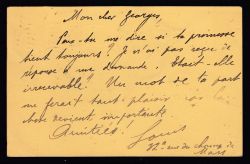 Mon cher Georges,
Peux-tu me dire si ta promesse
tient toujours? Je n'ai pas reçu de
réponse à ma demande. Etait-elle
irrecevable? Un mot de ta part
me ferait tant plaisir
chose devient importante
Amitiés. Louis
12 rue du champ de
Mars